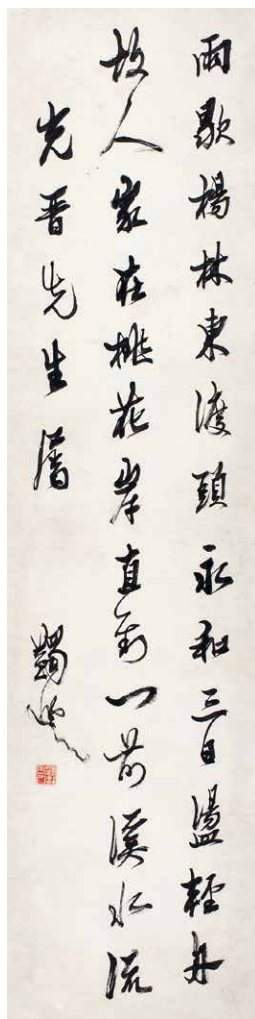 雨歇楊林東渡頭永和三日盪輕舟
故人家在桃花岸直到门前溪水流
光晋先生屬
蠲叟